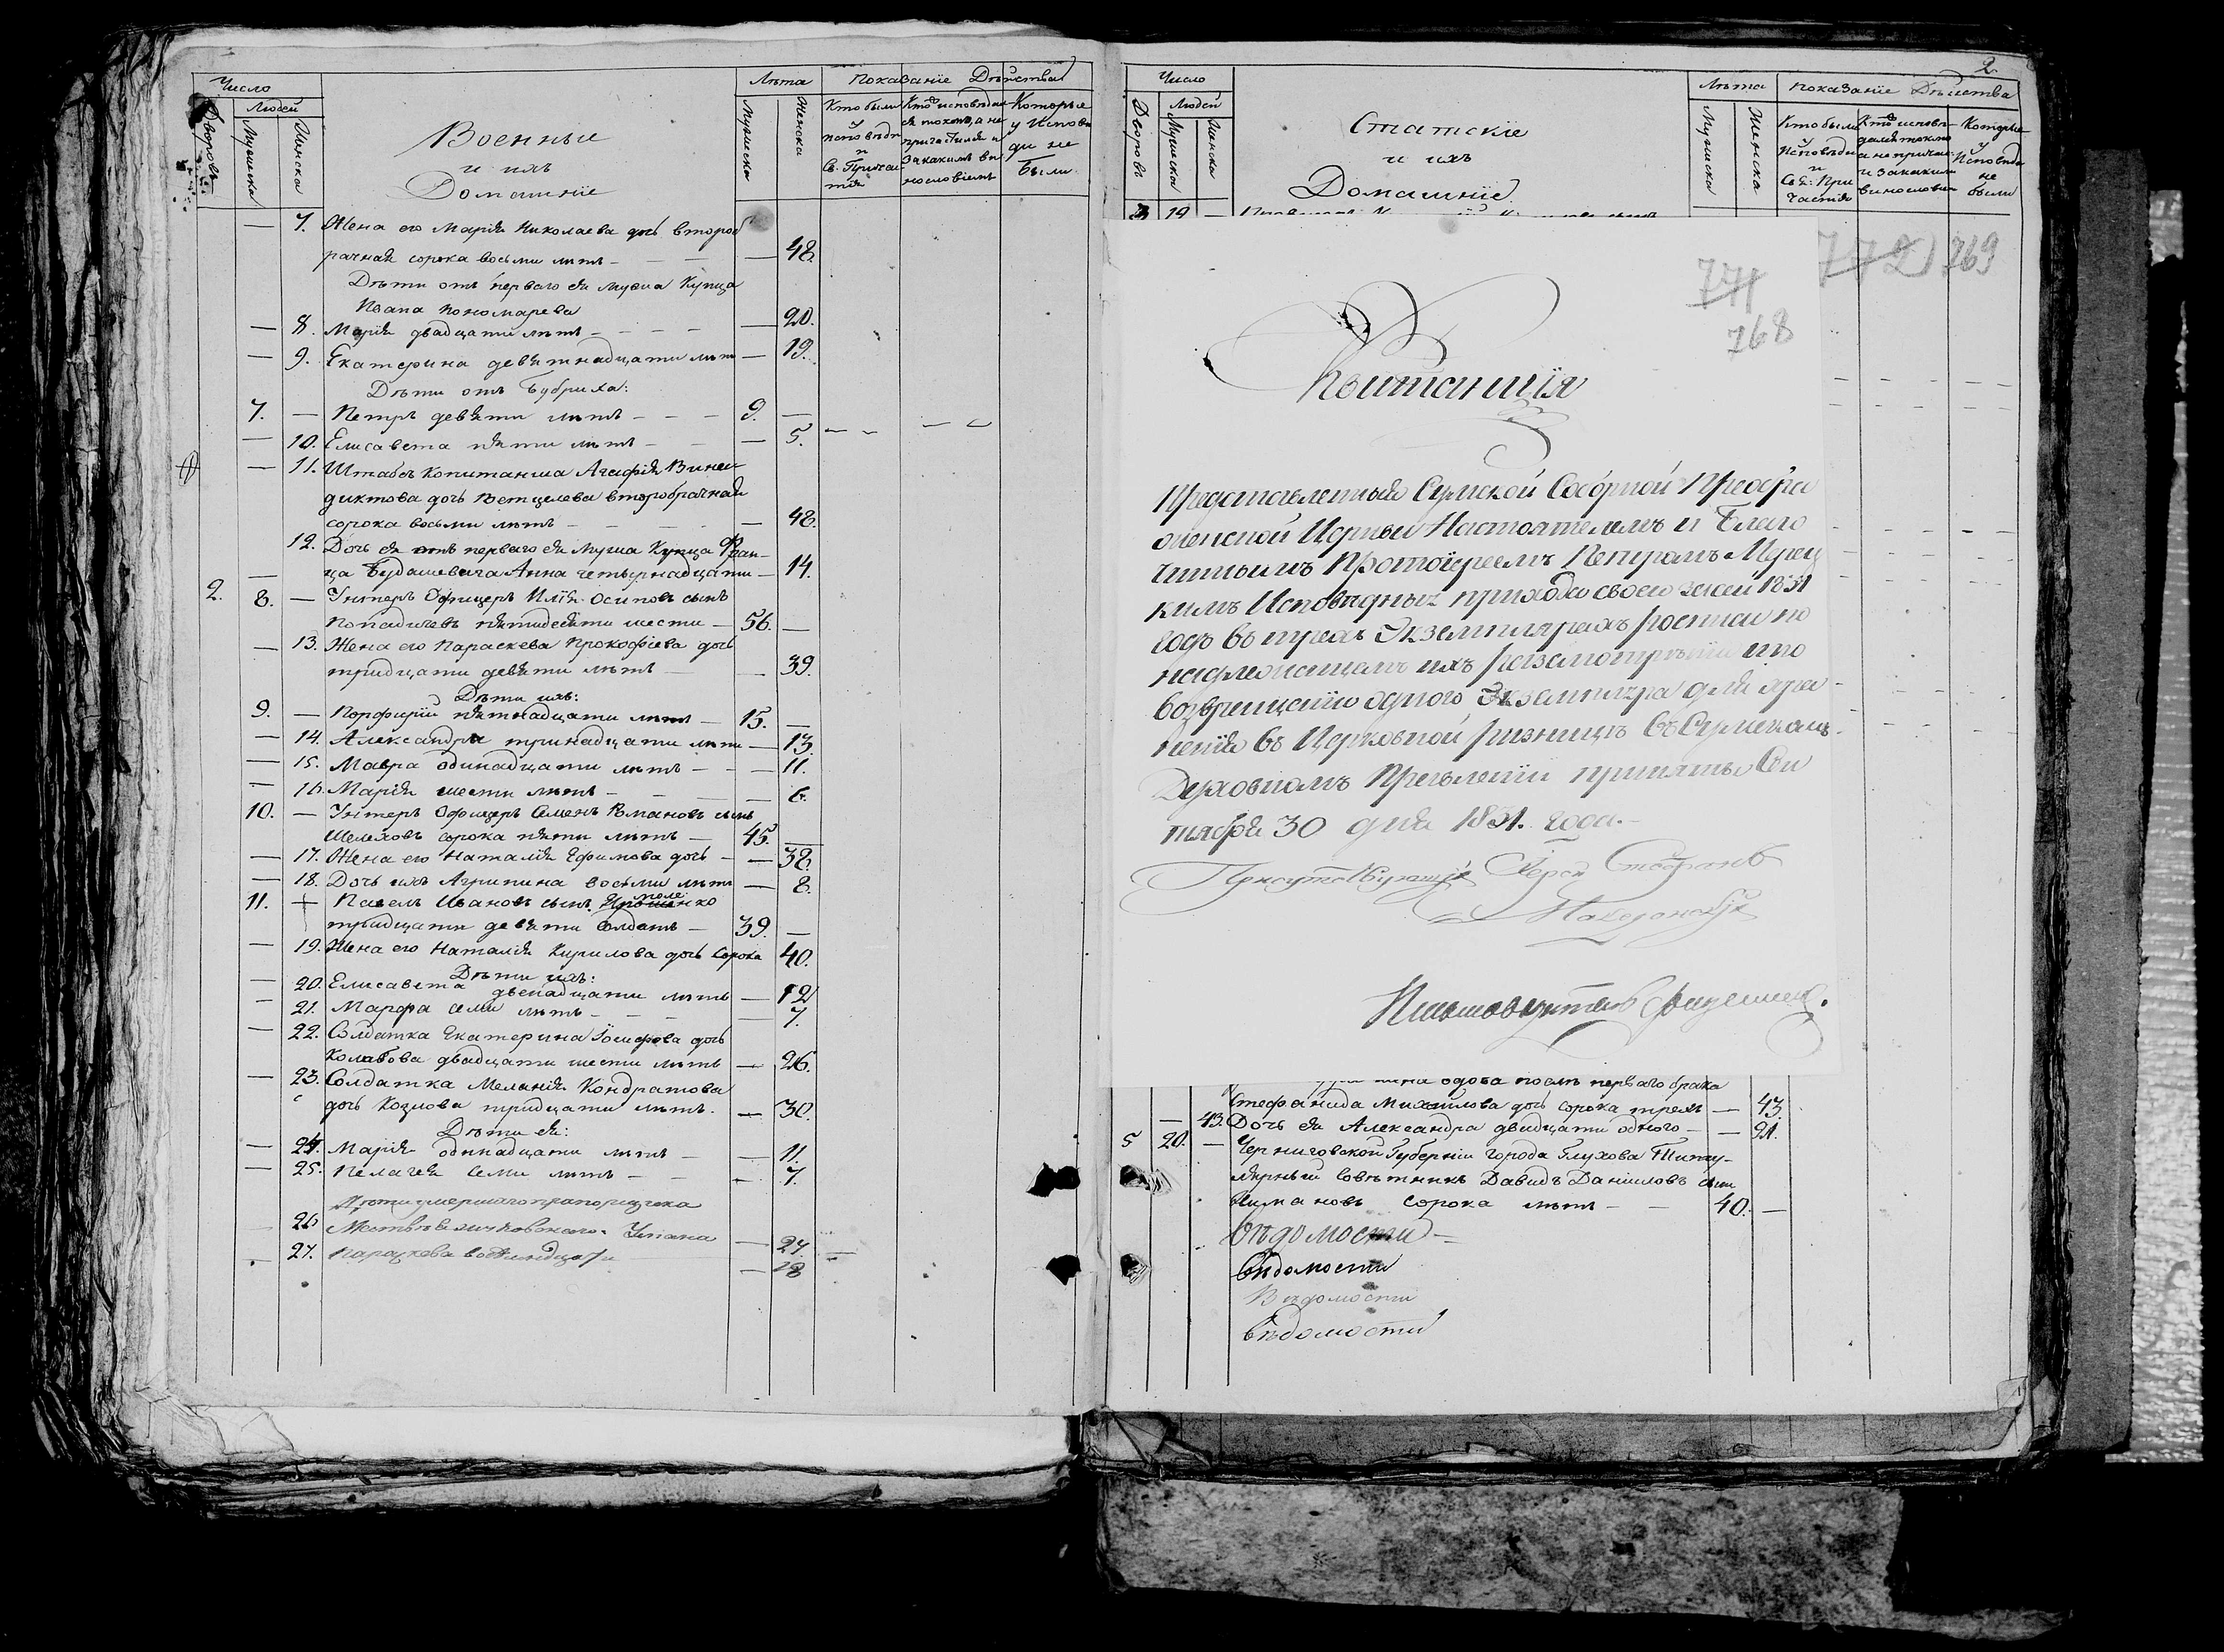 Число
Лѣта Показанїе Дѣйства
Дворовъ
Людей
Мужеска
Женска
Военные
и ихъ
Домашнїе
Мужеска
Женска
Кто были
у
исповѣди
и
Св. Причас
тїя
Кто исповѣдал
ся токмо, а не
причастился и
за какимъ ви
нословіемъ
Которые
у Исповѣ
ди не
были
— 7. Жена его Марїя Николаева дочь второб
рачная сорока восьми лѣтъ — — — 48.
Дѣти отъ перваго ея мужа Купца
Ивана Пономарева
— 8. Марїя двадцати лѣтъ — — — — 20.
— 9. Екатерина девятнадцати лѣтъ — 19.
Дѣти отъ Бубриха:
7. — Петръ девяти лѣтъ — — — 9. —
— 10. Елисавета пяти лѣтъ — — — 5.
— 11. Штабсъ Капитанша Агафїя Вине
диктова дочь Ветцелева второбрачная
сорока восьми лѣтъ — — — — 48.
12. Дочь ея отъ перваго ея мужа Купца Фран-
— ца Будашевича Анна четырнадцати — 14.
2. 8. — Унтеръ Офицеръ Илїя Осиповъ сынъ
Попадичевъ пятидесяти шести — 56. —
— 13. Жена его Параскева Прокофїева дочь
тридцати девяти лѣтъ — — 39.
Дѣти ихъ:
9. — Порфирїй пятнадцати лѣтъ — 15. —
— 14. Александра тринадцати лѣтъ — 13.
— 15. Мавра одинадцати лѣтъ — — — 11.
— 16. Марїя шести лѣтъ — — — — 6.
10. — Унтеръ Офицеръ Семенъ Романовъ сынъ
Шелеховъ сорока пяти лѣтъ — 45. —
— 17. Жена его Наталїя Ефимова дочь — — 38.
— 18. Дочь ихъ Агрипина восьми лѣтъ — 8.
11. — Павелъ Ивановъ сынъ
тридцати девяти Солдатъ — 39. —
— 19. Жена его Наталїя Кирилова дочь сорока 40.
Дѣти ихъ:
— 20. Елисавета двенадцати лѣтъ — 12
— 21. Марфа семи лѣтъ — — — — 7.
— 22. Солдатка Екатерина Їосифова дочь
двадцати шести лѣтъ — 26.
— 23. Солдатка Меланїя Кондратова
дочь Козлова тридцати лѣтъ. — 30.
Дѣти ея:
— 24. Марїя одинадцати лѣтъ — — 11.
— 25. Пелагея семи лѣтъ — — — 7.
Дѣти умершаго прапорщика
— 26 Улїана — 27.
— 27. Параскева — 18
2.
Число
Лѣта Показанїе Дѣйства
Дворовъ
Людей
Мужеска
Женска
Статскїе
и ихъ
Домашнїе
Мужеска
Женска
Кто были
у
Исповѣди
и
Св: При
частїя
Кто исповѣ-
дался токмо
а не причас-
и за какимъ
винословїем
Которые
у
Исповѣди
не
были
19 —
772) 769
771
768
Квитанція
Представленныя Сумской Соборной Преобра
женской Церкви Настоятелемъ и Благо
чиннымъ Протоїереемъ Петромъ
кимъ Исповѣдныя прихода своего за сей 1831
годъ въ трехъ Экземплярахъ росписи по
надлежащемъ ихъ разсмотрѣнїи и по
возвращенїи одного Экземпляра для хра-
ненїя въ Церковной ризницѣ въ Сумскомъ
Духовномъ Правленїи приняты Сен
тября 30 дня 1831. года.—
Присутствующїй Їерей Стефанъ
Письмоводитель
вдова по немъ перваго брака
Стефанида Михайлова дочь сорока трехъ — 43
— 43. Дочь ея Александра двадцати одного — — 21.
5 20. — Черниговской Губернїи Города Глухова Титу-
лярный Совѣтникъ Давидъ Данїиловъ сынъ
сорока лѣтъ — — 40. —
Вѣдомости —
Вѣдомости
Вѣдомости
Вѣдомости